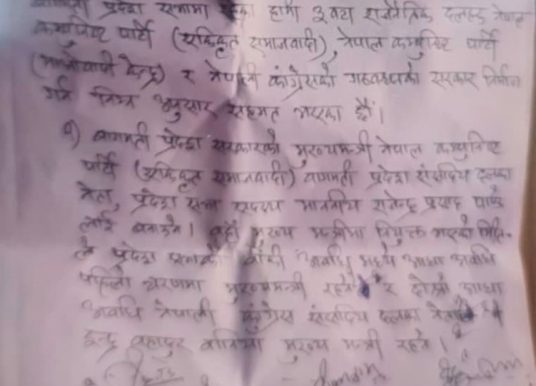 प्रदेश सभामा रहेका हामी ३ वटा राजनैतिक दलहरु नेपाल
कम्युनिष्ट पार्टी (एकिकृत समाजवादी), नेपाल कम्युनिष्ट पार्टी
(माओवादी केन्द्र) र नेपाली कांग्रेसको गठबन्धनको सरकार निर्माण
गर्न निम्न अनुसार सहमत भएका छौं।
१) बागमती प्रदेश सरकारको मुख्यमन्त्री नेपाल कम्युनिष्ट
पार्टी (एकिकृत समाजवादी) बागमती प्रदेश संसदिय दलका
नेता, प्रदेश सभा सदस्य माननीय राजेन्द्र प्रसाद पाण्डे
लाई बनाउने। मुख्य मन्त्रीमा नियुक्त भएको मिति
ले प्रदेश सभाको बाँकी अवधि मध्ये आधा अवधि
पहिलो चरणमा मुख्यमन्त्री रहने र दोस्रो आधा
अवधि नेपाली कांग्रेस संसदिय दलका नेता
इन्द्र बहादुर बानियाँ मुख्य मन्त्री रहने।